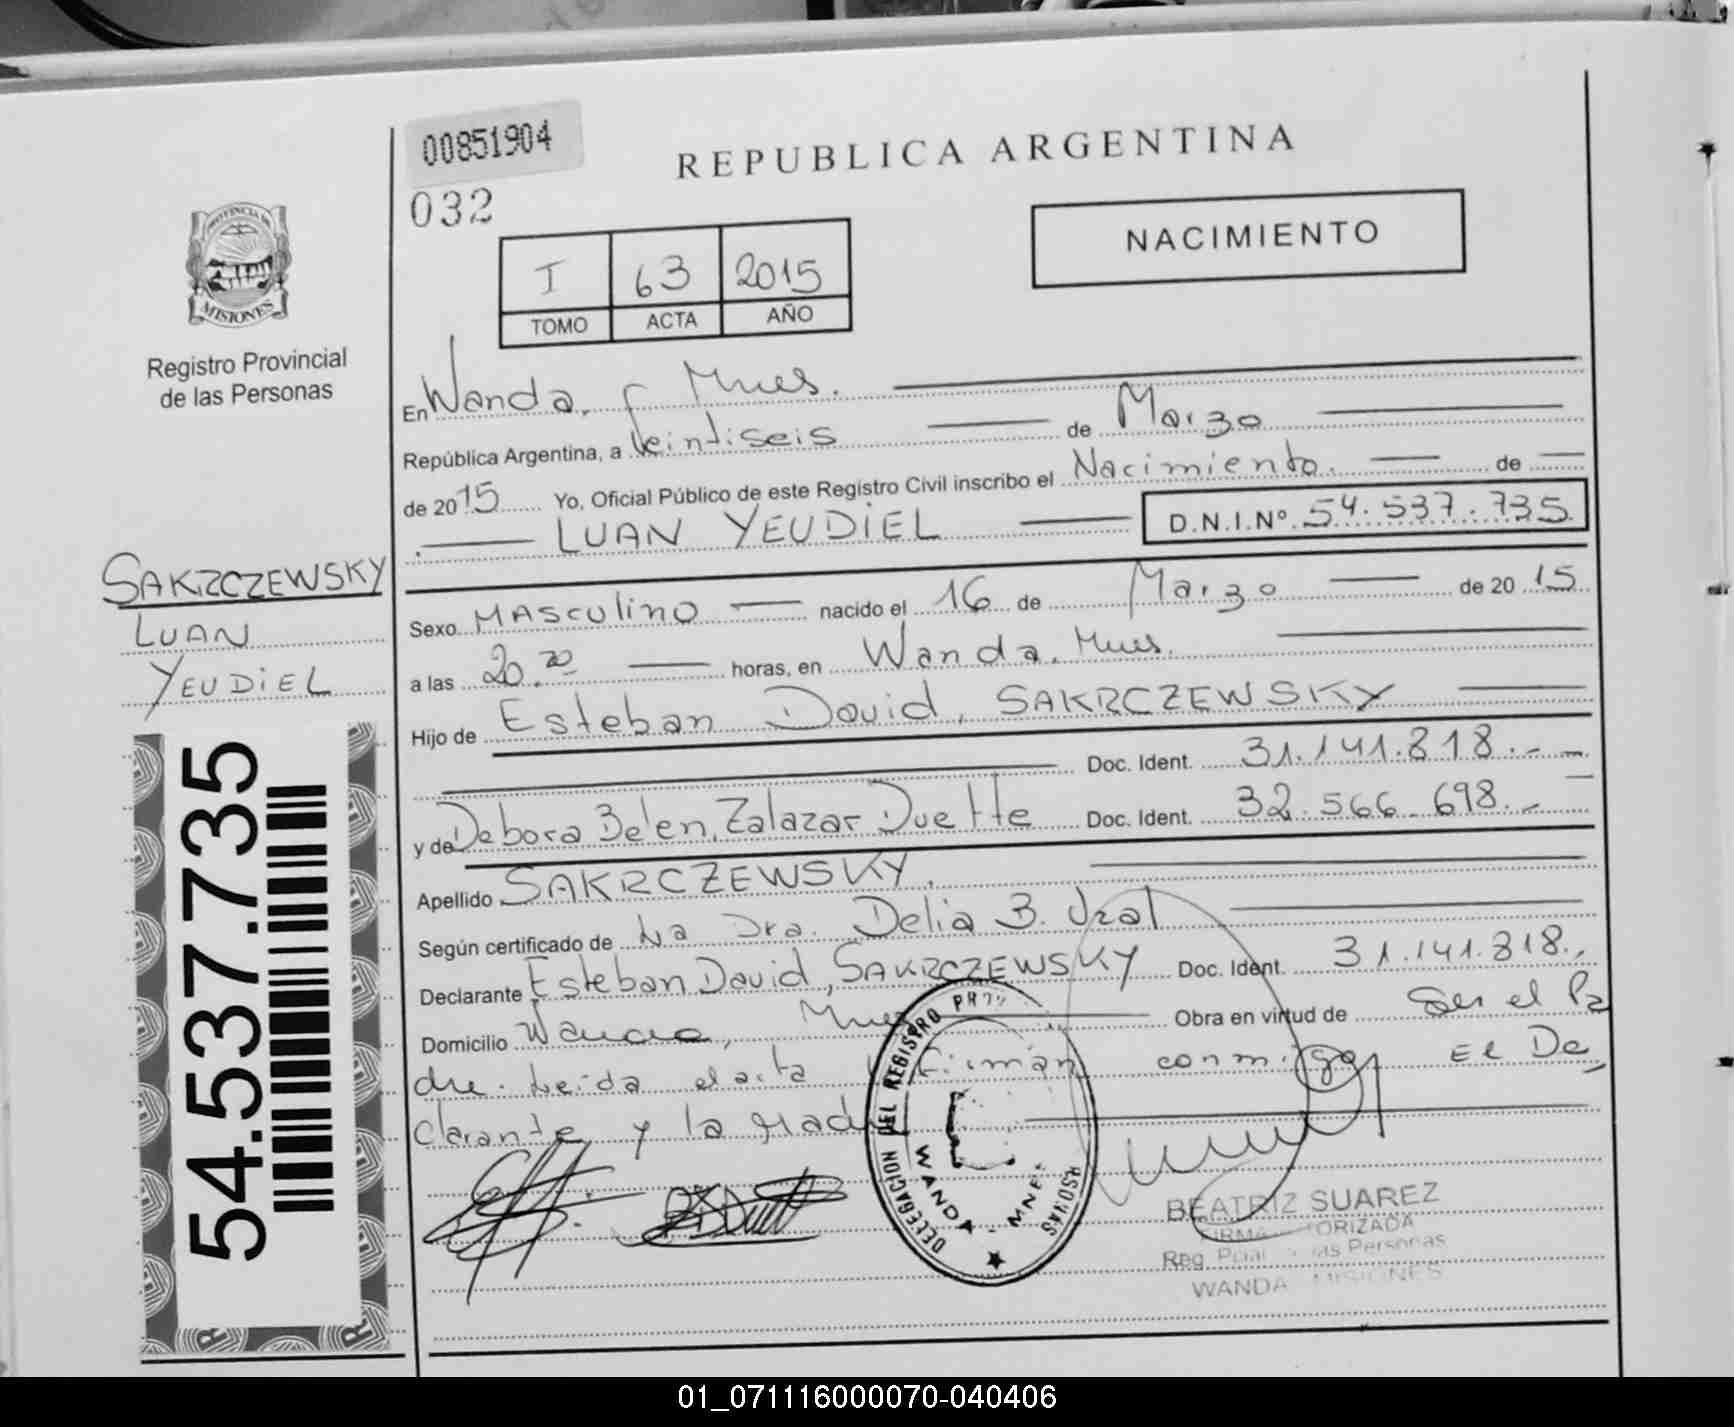 00851904
REPUBLICA ARGENTINA
032
NACIMIENTO
I 63 2015
TOMO ACTA AÑO
PROVINCIA DE
MISIONES
Registro Provincial
de las Personas
En Wanda,
República Argentina, a Veintiseis de Marzo
de 2015 Yo, Oficial Público de este Registro Civil inscribo el Nacimiento. de
LUAN YEUDIEL D.N.I.Nº 54.537.735
SAKRCZEWSKY
LUAN
YEUDIEL
Sexo MASCULINO nacido el 16 de Marzo de 2015
a las 20.20 horas, en Wanda,
Hijo de Esteban David, SAKRCZEWSKY
Doc. Ident. 31.141.818.-
y de Debora Belen, Zalazar Duette Doc. Ident. 32.566.698.-
Apellido SAKRCZEWSKY.
Según certificado de La Dra. Delia B.
Declarante Esteban David, SAKRCZEWSKY Doc. Ident. 31.141.818.-
Domicilio Wanda, Obra en virtud de Ser el Pa
dre. Leida el acta Firman conmigo El De
clarante y la Madre
54.537.735
DELEGACION DEL REGISTRO
WANDA - MNES
BEATRIZ SUAREZ
FIRMA AUTORIZADA
Reg. Pcial. las Personas
WANDA MISIONES
01_071116000070-040406